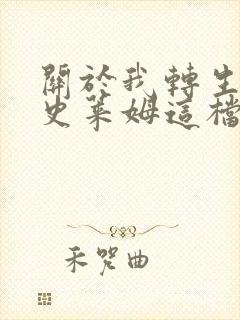 關於我轉生
史萊姆這檔
禾咒曲